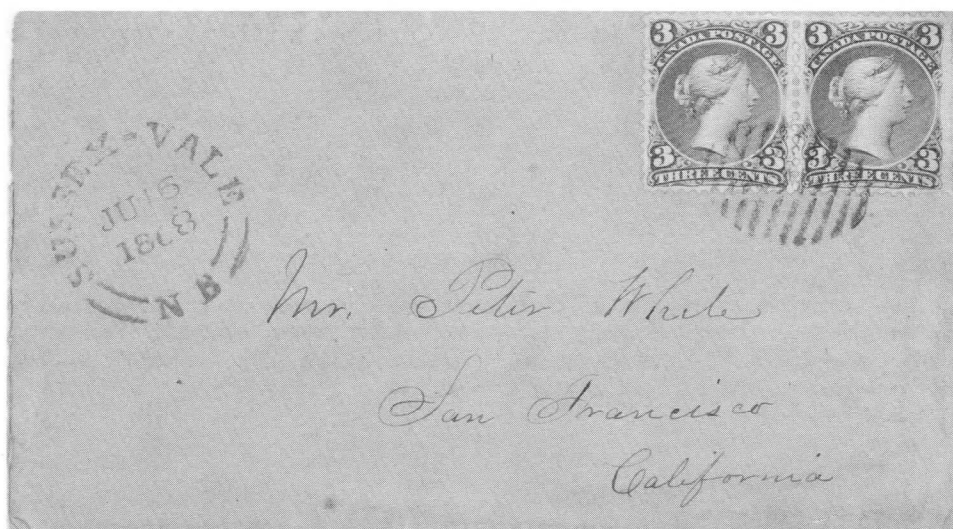 3 CANADA POSTAGE 3
3 THREE CENTS 3
3 CANADA POSTAGE 3
3 THREE CENTS 3
SUSSEX-VALE
1868
N B
Mr. Peter White
San Francisco
California